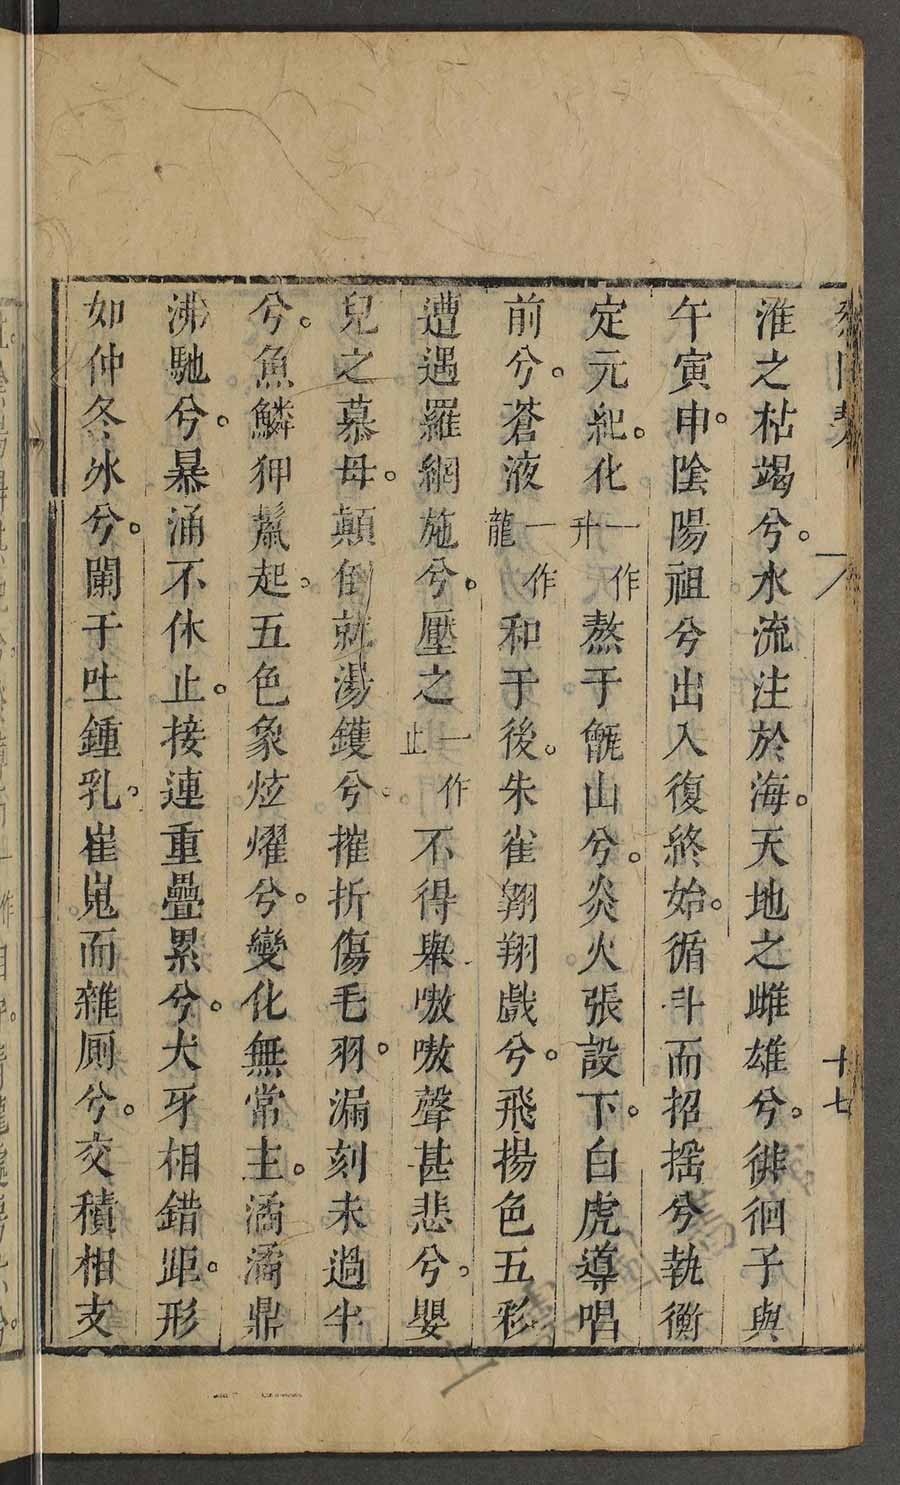 淮之枯竭兮。水流注於海。天地之雌雄兮。徘徊子與
午寅申。陰陽祖兮出入復終始。循斗而招揺兮執衡
定元紀。化一作升熬于甑山兮。炎火張設下。白虎導唱
前兮。蒼液一作龍和于後。朱雀翱翔戲兮。飛揚色五彩
遭遇羅網施兮。壓之一作止不得舉嗷嗷聲甚悲兮。嬰
兒之慕母。顛倒就湯鑊兮。摧折傷毛羽。漏刻未過半
兮。魚鱗狎鬣起。五色象炫燿兮。變化無常主。潏潏鼎
沸馳兮。暴涌不休止。接連重疊累兮。犬牙相錯距。形
如仲冬氷兮。闌干吐鍾乳。崔嵬而雜厠兮。交積相支
十七